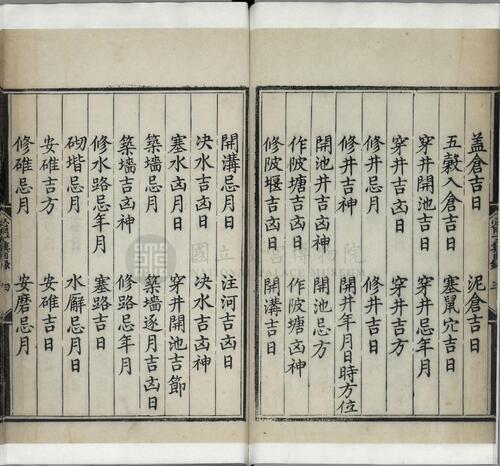 蓋倉吉日 泥倉吉日
五糓入倉吉日 塞鼠穴吉日
穿井開池吉日 穿井忌年月
穿井吉凶日 穿井吉方
修井忌月 修井吉日
修井吉神 開井年月日時方位
開池井吉凶日 開池忌方
作陂塘吉凶日 作陂塘凶神
修陂堰吉凶日 開溝吉日
開溝忌月日 注河吉凶日
决水吉凶日 决水吉凶神
塞水凶月日 穿井開池吉節
築墻忌月 築墻逐月吉凶日
築墻吉凶神 修路忌年月
修水路忌年月 塞路吉日
砌堦忌月 水廨忌月日
安碓吉方 安碓吉日
修碓忌月 安磨忌月
國立故宮博物院
NATIONAL PALACE MUSEUM